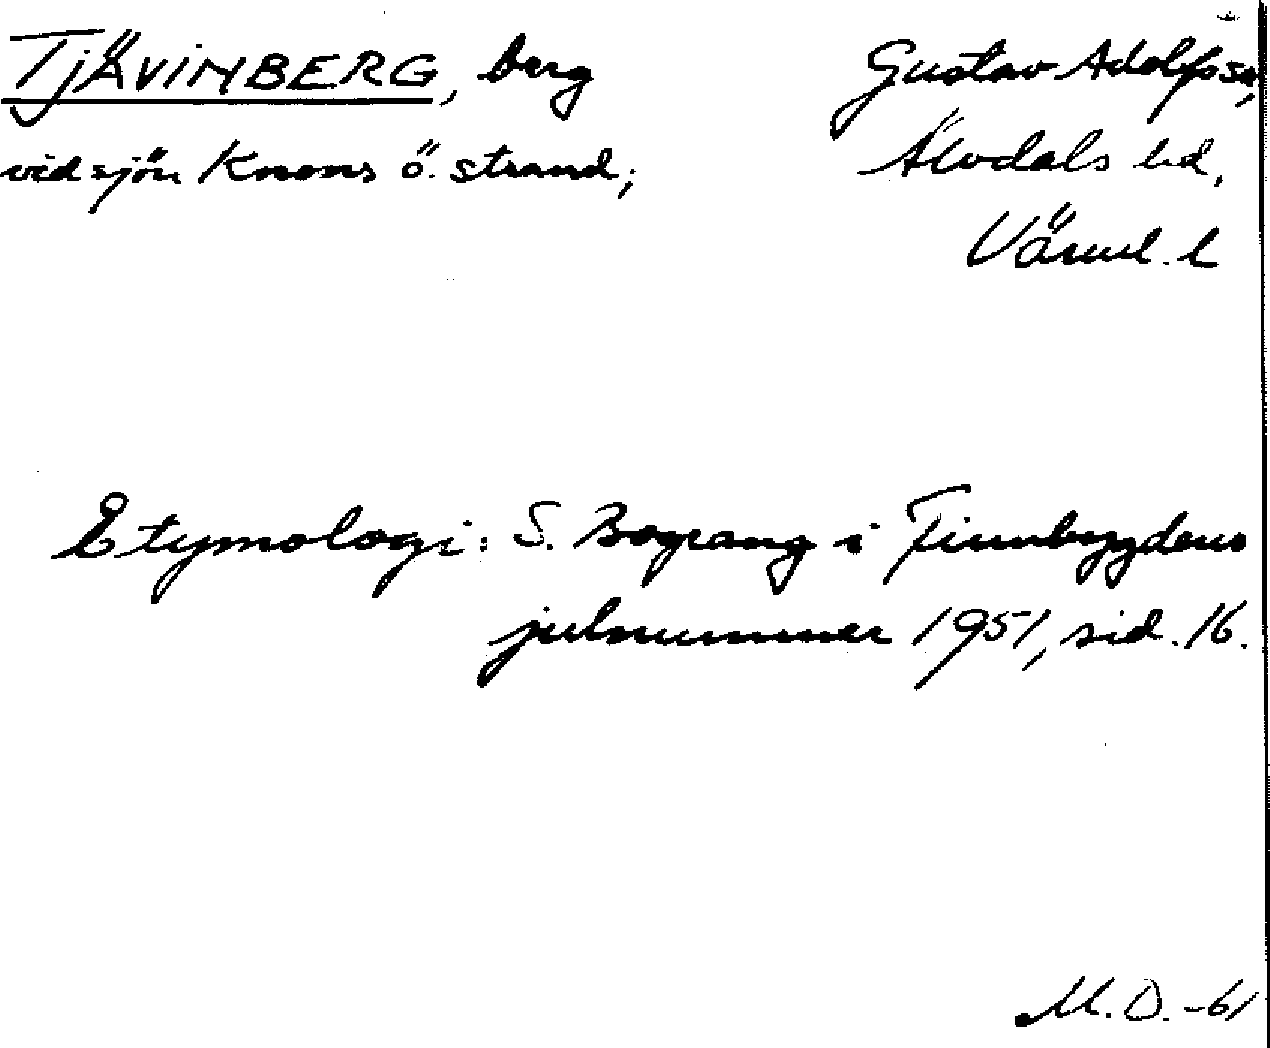 TJÄVINBERG, berg
vid sjön Knons ö. strand;
Gustav Adolfs sn,
Älvdals hd,
Värml. l
Etymologi: S. Bograng i Finnbygdens
julnummer 1951, sid. 16.
M. D. -61